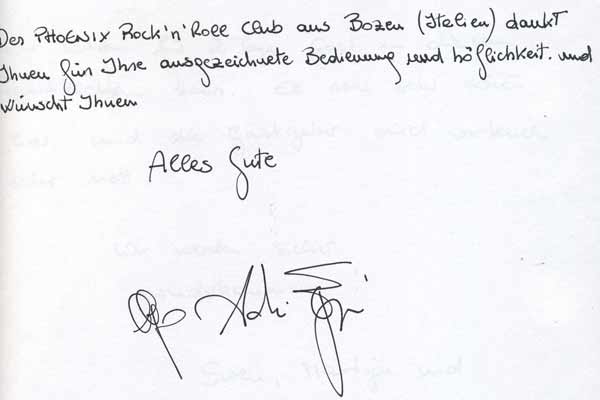 Der PHOENIX Rock'n'Roll Club aus Bozen (Italien) dankt
Ihnen für Ihre ausgezeichnete Bedienung und höflichkeit. und
wünscht Ihnen
Alles Gute